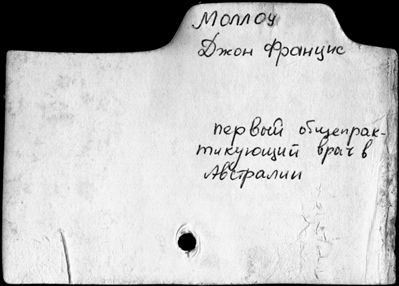 Моллоу
Джон Францис
первый общепрак-
тикующий врач в
Австралии